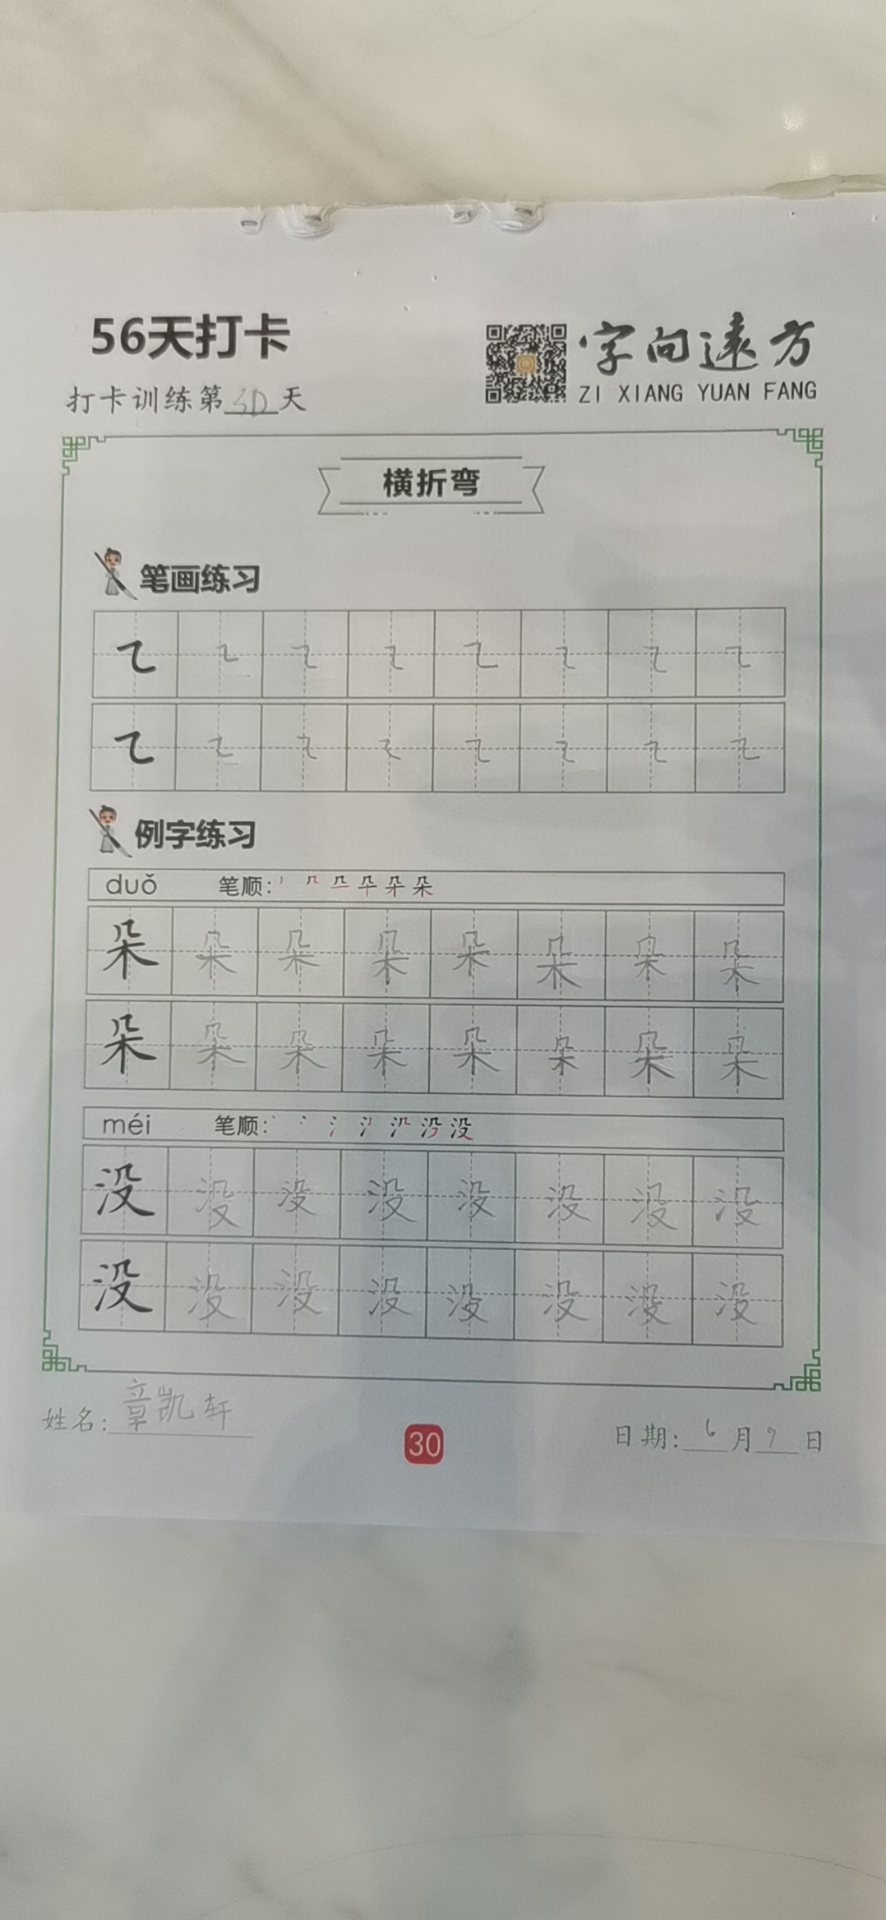 56天打卡
字向遠方
ZI XIANG YUAN FANG
打卡训练第30天
横折弯
笔画练习
㇍ ㇍ ㇍ ㇍ ㇍ ㇍ ㇍ ㇍
㇍ ㇍ ㇍ ㇍ ㇍ ㇍ ㇍ ㇍
例字练习
duǒ 笔顺:
朵 朵 朵 朵 朵 朵 朵 朵
朵 朵 朵 朵 朵 朵 朵 朵
méi 笔顺:
没 没 没 没 没 没 没 没
没 没 没 没 没 没 没 没
姓名:章凯轩
30
日期:6月7日